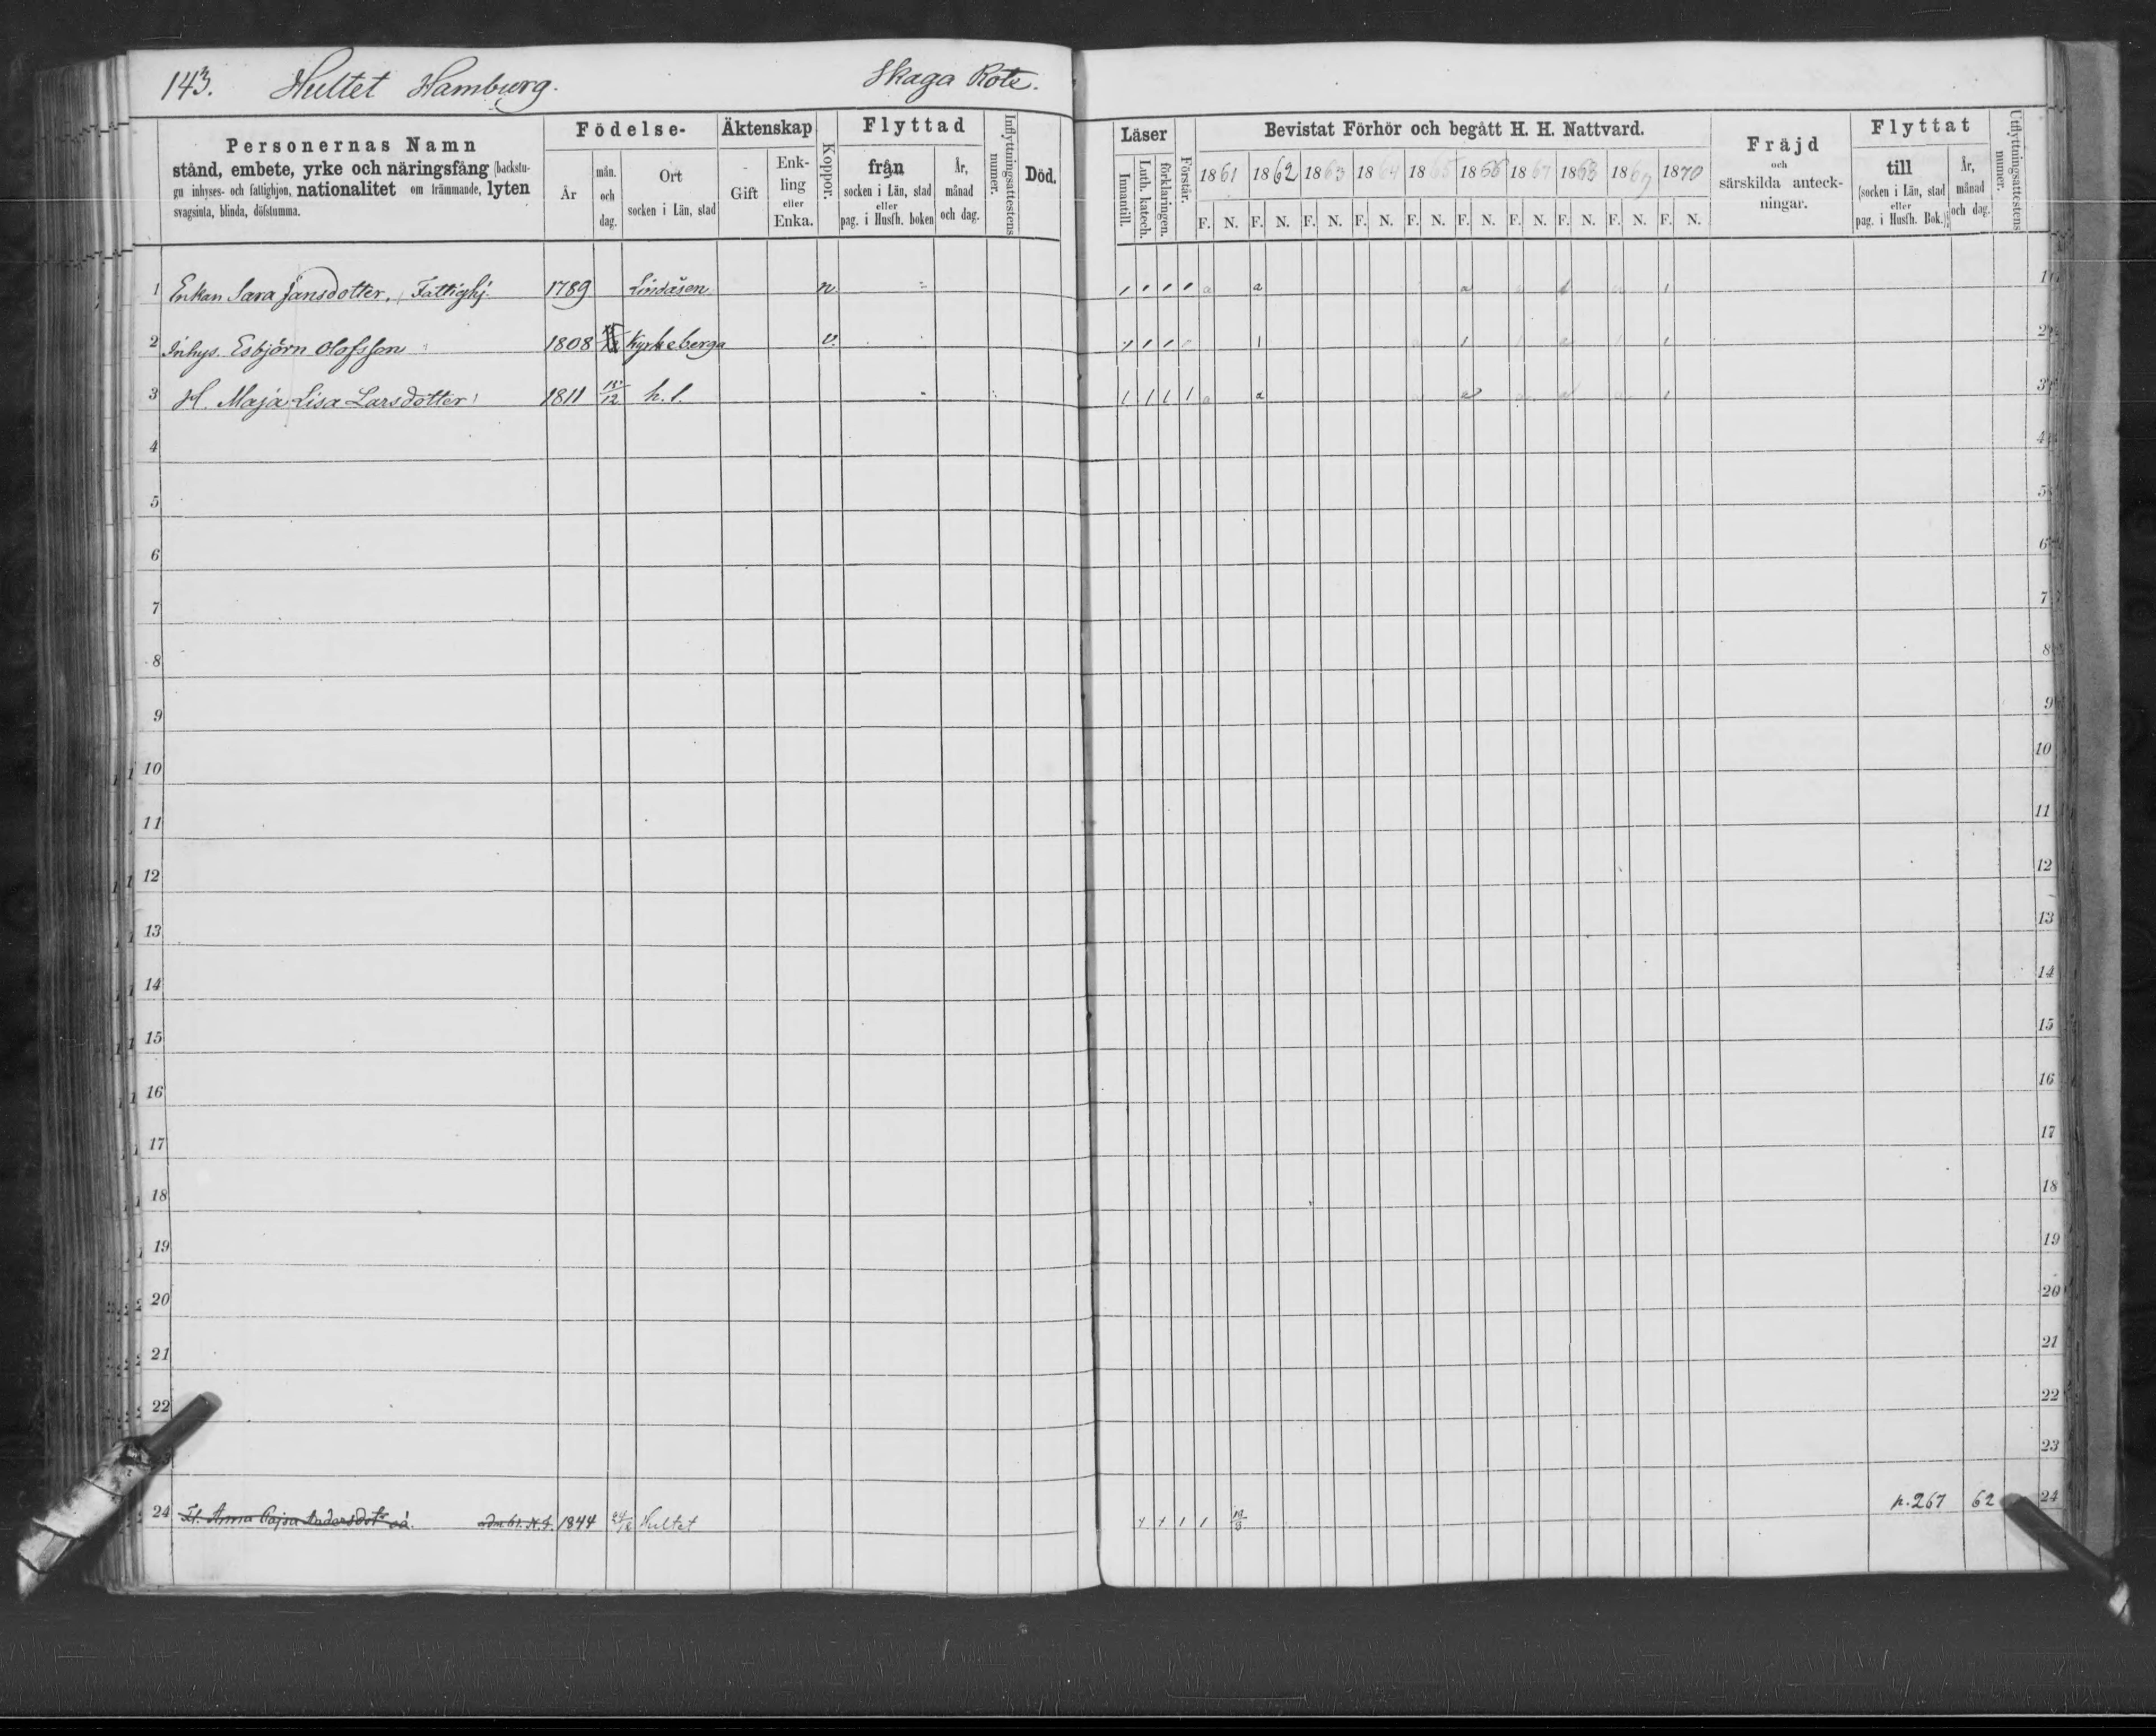 143. Hultet Hamburg. Skaga Rote.
Personernas Namn
stånd, embete, yrke och näringsfång (backstu-
gu inhyses- och fattighjon, nationalitet om främmande, lyten
svagsinta, blinda, döfstumma.
Födelse-
År
mån.
och
dag.
Ort
socken i Län, stad
Äktenskap
Gift
Enk-
ling
eller
Enka.
Koppor.
Flyttad
från
socken i Län, stad
eller
pag. i Husfh. boken
År,
månad
och dag.
Inflyttningsattestens
nummer.
Död.
Läser
Innantill.
Luth. katech.
förklaringen.
Förstår.
Bevistat Förhör och begått H. H. Nattvard.
1861 1862 1863 1864 1865 1866 1867 1868 1869 1870
F. N. F. N. F. N. F. N. F. N. F. N. F. N. F. N. F. N. F. N.
Fräjd
och
särskilda anteck-
ningar.
Flyttat
till
(socken i Län, stad
eller
pag. i Husfh. Bok.)
År,
månad
och dag.
Utflyttningsattestens
nummer.
1 Enkan Sara Jansdotter, Fattighj. 1789 n. a a a 1
2 Inhys. Esbjörn Olofsson 1808 Kyrkeberga v. 2
3 H. Maja Lisa Larsdotter 1811 18/12 h. s. a a a 3
4 4
5 5
6 6
7 7
8 8
9 9
10 10
11 11
12 12
13 13
14 14
15 15
16 16
17 17
18 18
19 19
20 20
21 21
22 22
23
24 Anna Cajsa Andersdotr 1844 Hultet p. 267 62 24